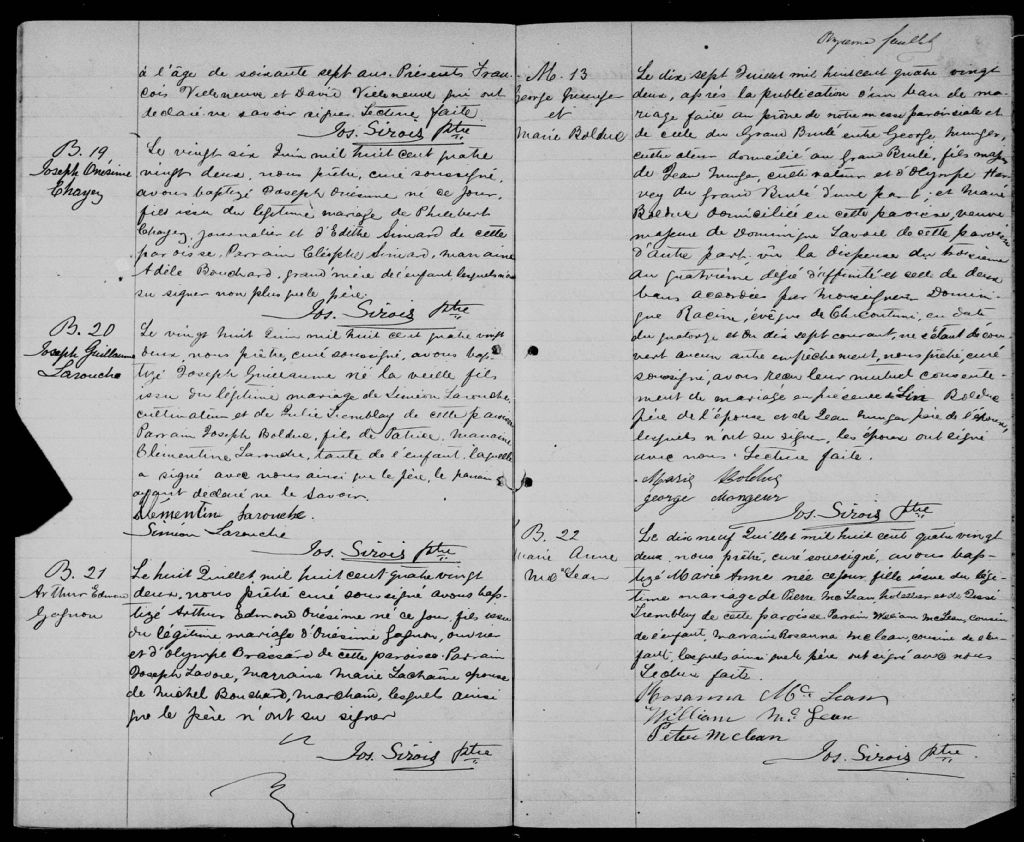 à l'âge de soixante sept ans. Présents Fran-
çois Villeneuve et David Villeneuve qui ont
déclaré ne savoir signer. Lecture faite.
Jos. Sirois Ptre
B. 19
Joseph Onésime
Le vingt six Juin mil huit cent quatre
vingt deux, nous prêtre, curé soussigné,
avons baptizé Joseph Onésime né ce jour,
fils issu du légitime mariage de Philibert
journalier et d'Edithe Simard de cette
paroisse. Parrain Cléophe Simard, marraine
Adèle Bouchard, grand'mère de l'enfant lesquels n'ont
su signer non plus que le père.
Jos. Sirois Ptre
B. 20
Joseph Guillaume
Larouche
Le vingt huit Juin mil huit cent quatre vingt
deux, nous prêtre, curé soussigné, avons bap-
tizé Joseph Guillaume né la veille fils
issu du légitime mariage de Siméon Larouche,
cultivateur et de Julie Tremblay de cette paroisse
Parrain Joseph Bolduc, fils de Patrice, marraine
Clémentine Larouche, tante de l'enfant, laquelle
a signé avec nous ainsi que le père, le parrain
ayant déclaré ne le savoir.
Clémentine Larouche.
Siméon Larouche
Jos. Sirois Ptre
B. 21
Arthur Edmond
Gagnon
Le huit Juillet mil huit cent quatre vingt
deux, nous prêtre curé soussigné avons bap-
tizé Arthur Edmond Onésime né ce jour, fils issu
du légitime mariage d'Onésime Gagnon, ouvrier
et d'Olympe Brassard de cette paroisse. Parrain
Joseph Lavoie, marraine Marie Lachaine épouse
de Michel Bouchard, marchand, lesquels ainsi
que le père n'ont su signer
Jos. Sirois Ptre
feuillet
M. 13
George
et
Marie Bolduc
Le dix sept Juillet mil huit cent quatre vingt
deux, après la publication d'un ban de ma-
riage faite au prône de notre messe paroissiale et
de celle du Grand Brulé entre George Munger,
cultivateur domicilié au Grand Brulé, fils majeur
de Jean Munger, cultivateur et d'Olympe Har-
vey du Grand Brulé d'une part; et Marie
Bolduc domiciliée en cette paroisse, veuve
majeure de Dominique Lavoie de cette paroisse
d'autre part; vû la dispense du troisième
au quatrième degré d'affinité et celle de deux
bans accordées par Monseigneur Domini-
que Racine, évêque de Chicoutimi, en date
du quatorze et du dix sept courant, ne s'étant décou-
vert aucun autre empêchement, nous prêtre, curé
soussigné, avons reçu leur mutuel consente-
ment de mariage en présence de Bolduc
père de l'épouse et de Jean Munger père de l'époux,
lesquels n'ont su signer, les époux ont signé
avec nous. Lecture faite.
Marie Bolduc
george Mongeur
Jos. Sirois Ptre
B. 22
Marie Anne
McLean
Le dix neuf Juillet mil huit cent quatre vingt
deux, nous prêtre, curé soussigné, avons bap-
tizé Marie Anne née ce jour, fille issue du légi-
time mariage de Pierre McLean hotellier et de
Tremblay de cette paroisse Parrain William McLean, cousin
de l'enfant, marraine Rosanna McLean, cousine de l'en-
fant, lesquels ainsi que le père ont signé avec nous
Lecture faite.
Rosanna McLean
William McLean
Peter Mclean
Jos. Sirois Ptre